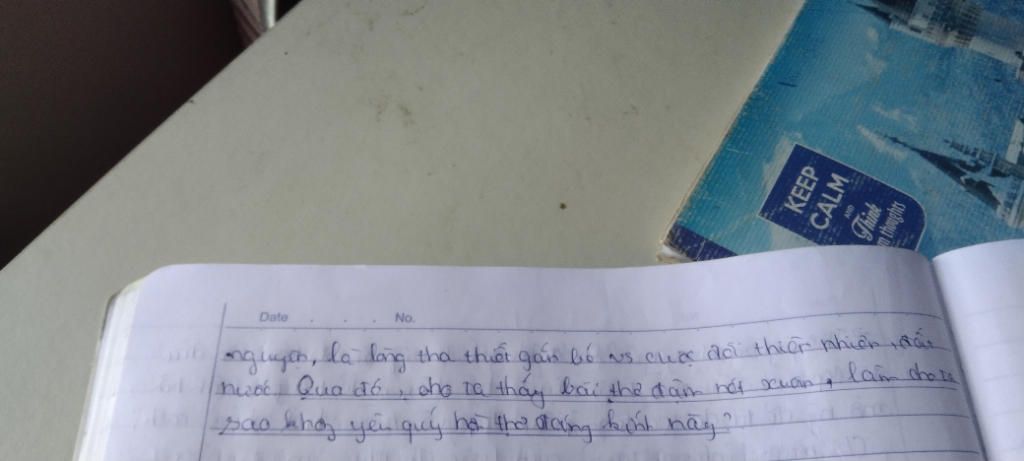 KEEP
CALM
AND
Think
thoughts
Date . . . No.
nguyện, là lòng tha thiết gắn bó vs cuộc đời thiên nhiên, đất
nước. Qua đó, cho ta thấy bài thơ đậm nét xuân, làm cho ta
sao khog yêu quý nhà thơ đáng kính này?